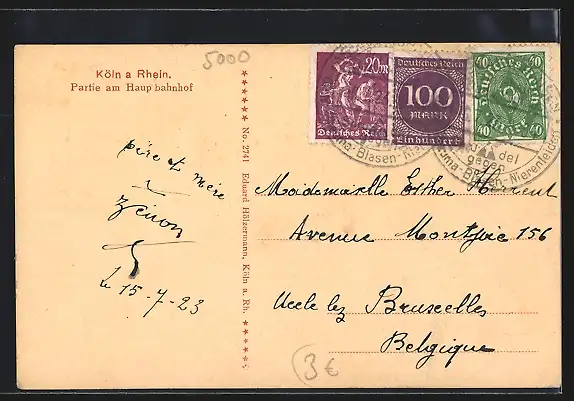 5000
Köln a Rhein.
Partie am Hauptbahnhof
père et mère
Zénon
Le 15-7-23
****** No. 2741 Eduard Hölzermann, Köln a. Rh. ******
20m
Deutsches Reich
Deutsches Reich
100
MARK
Einhundert
40 40
Deutsches Reich
40 40
del
gegen
uma-Blasen-Nierenleiden
Mademoiselle Esther
Avenue Montjoie 156
Uccle lez Bruxelles
Belgique
3€